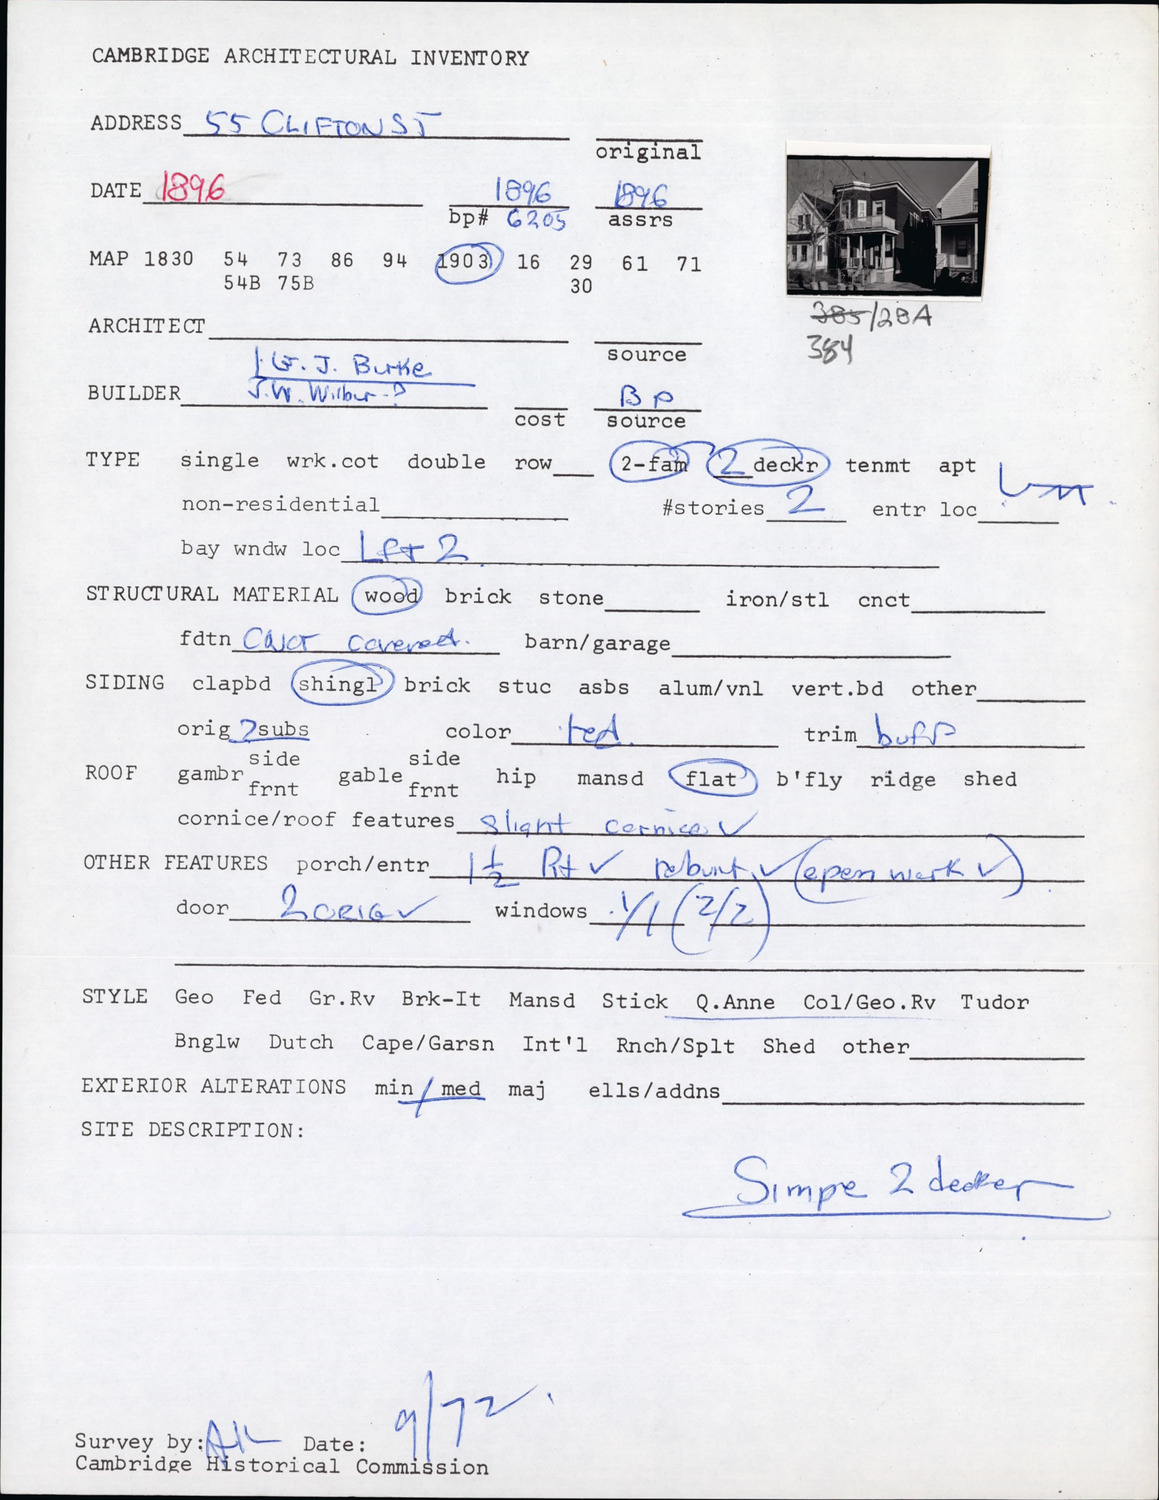 CAMBRIDGE ARCHITECTURAL INVENTORY
ADDRESS 55 CLIFTON ST
original
DATE 1896 1896 1896
bp# 6205 assrs
MAP 1830 54 73 86 94 1903 16 29 61 71
54B 75B 30
385/28A
384
ARCHITECT
source
J. Burke
BUILDER J.W. Wilbur-? BP
cost source
TYPE single wrk.cot double row 2-fam 2 deckr tenmt apt
non-residential #stories 2 entr loc
bay wndw loc Lft 2
STRUCTURAL MATERIAL wood brick stone iron/stl cnct
fdtn covered. barn/garage
SIDING clapbd shingl brick stuc asbs alum/vnl vert.bd other
orig ? subs color red. trim buff
side side
ROOF gambr gable hip mansd flat b'fly ridge shed
frnt frnt
cornice/roof features slight cornice ✓
OTHER FEATURES porch/entr 1½ Rt ✓ rebuilt ✓ (open work ✓)
door 2 ORIG ✓ windows 1/1 (2/2)
STYLE Geo Fed Gr.Rv Brk-It Mansd Stick Q.Anne Col/Geo.Rv Tudor
Bnglw Dutch Cape/Garsn Int'l Rnch/Splt Shed other
EXTERIOR ALTERATIONS min / med maj ells/addns
SITE DESCRIPTION:
Simpe 2 decker
9/72.
Survey by: Date:
Cambridge Historical Commission